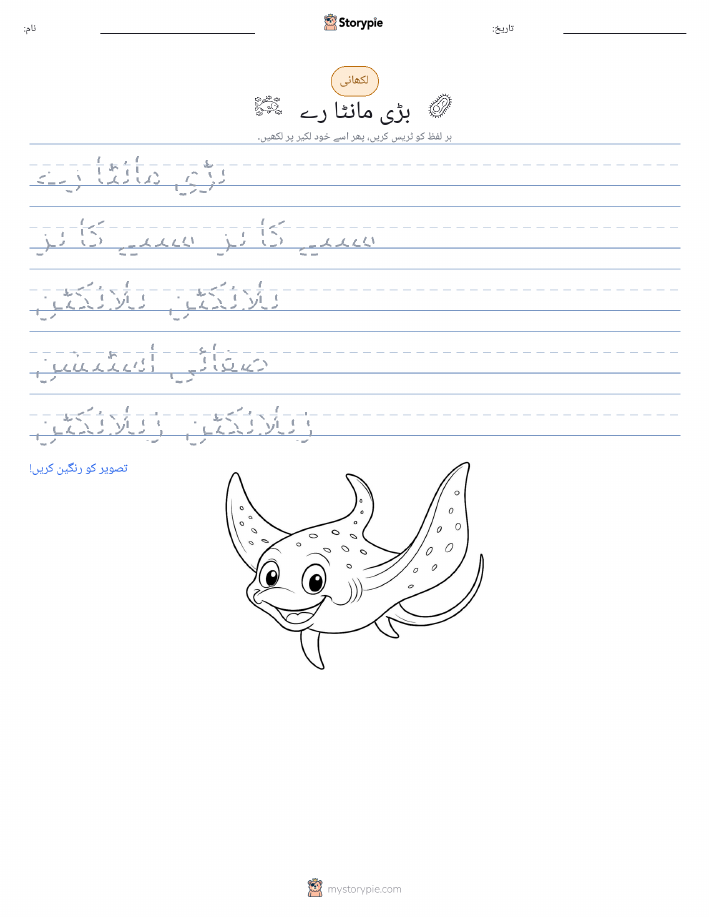 نام:
Storypie
تاریخ:
لکھائی
بڑی مانٹا رے
ہر لفظ کو ٹریس کریں، پھر اسے خود لکیر پر لکھیں۔
بڑی مانٹا رے
پلانکٹن پلانکٹن
صفائی اسٹیشن
تصویر کو رنگین کریں!
mystorypie.com